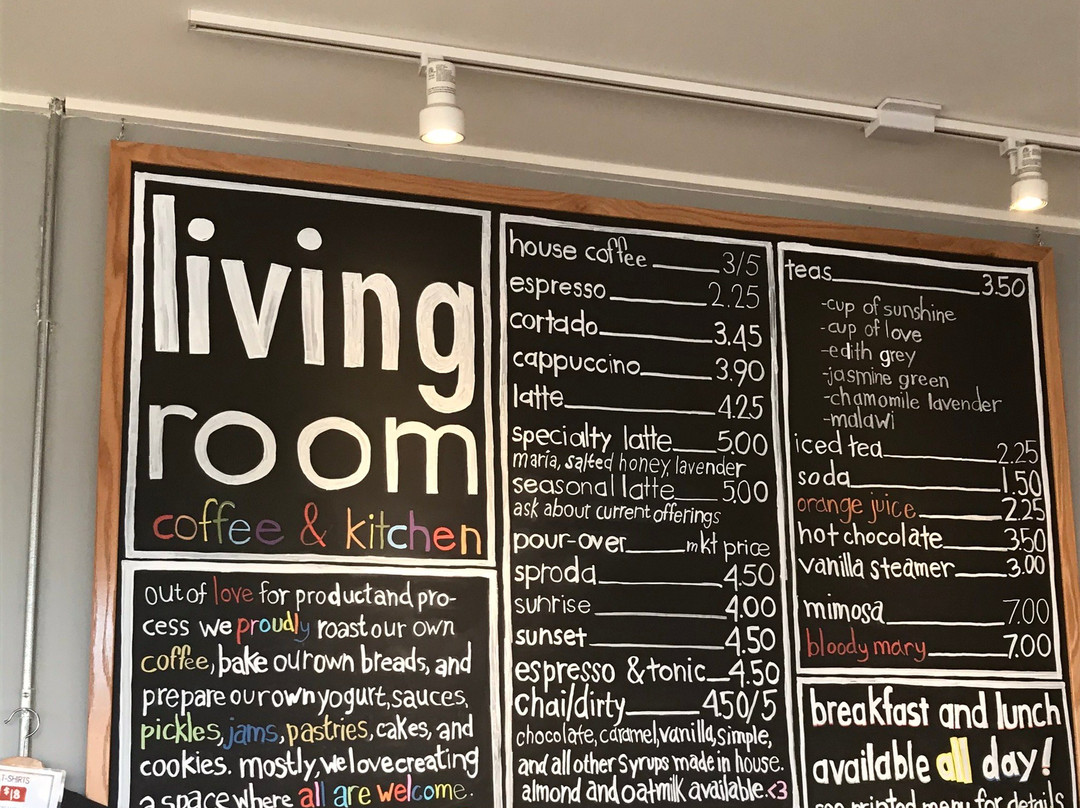 living
room
coffee & kitchen
out of love for product and pro-
cess we proudly roast our own
coffee, bake our own breads, and
prepare our own yogurt, sauces,
pickles, jams, pastries, cakes, and
cookies. mostly, we love creating
a space where all are welcome.
house coffee 3/5
espresso 2.25
cortado 3.45
cappuccino 3.90
latte 4.25
specialty latte 5.00
maria, salted honey, lavender
seasonal latte 5.00
ask about current offerings
pour-over mkt price
sproda 4.50
sunrise 4.00
sunset 4.50
espresso & tonic 4.50
chai/dirty 4.50/5
chocolate, caramel, vanilla, simple,
and all other syrups made in house.
almond and oatmilk available. <3
teas 3.50
-cup of sunshine
-cup of love
-edith grey
-jasmine green
-chamomile lavender
-malawi
iced tea 2.25
soda 1.50
orange juice 2.25
hot chocolate 3.50
vanilla steamer 3.00
mimosa 7.00
bloody mary 7.00
breakfast and lunch
available all day!
see printed menu for details
T-SHIRTS
$18